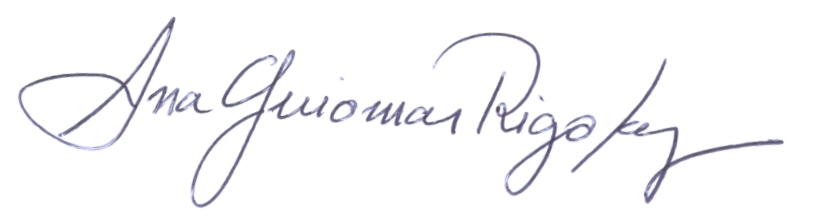 Ana Guiomar Rigo